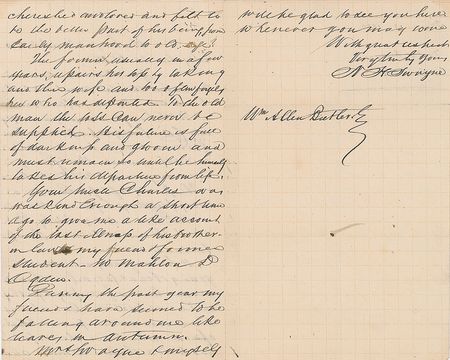 cherished and loved and felt to
to the better part of his being, from
early manhood to old age.
The former usually in a few
years, repairs his loss by taking
another wife and too often forgets
her who has departed. To the old
man the loss can never be
supplied. His future is full
of darkness and gloom and
must remain so until he himself
takes his departure from life.
Your Uncle Charles was
was kind enough a short time
ago to give me a like account
of the last illness of his brother
in law my friend & former
student - Mr Mahlon D
Ogden.
During the past year my
friends have seemed to be
falling around me like
leaves in autumn.
Mrs Swayne & myself
will be glad to see you here
whenever you may come
With great respect
Very truly yours
N H Swayne
Wm Allen Butler Esq